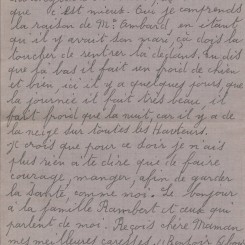 que c'est mieux. Oui je comprends
la raison de Mr Lombard en disant
qu'il y aurait son mari, çà dois la
toucher de rentrer là dedans. Tu dis
que là bas il fait un froid de chien
et bien, ici il y a quelques jours que
la journée il fait très beau, il
fait froid que la nuit, car il y a de
la neige sur toutes les Hauteurs.
je crois que pour ce soir je n'ais
plus rien à te dire que de faire
courage, manger, afin de garder
la santé, comme moi. Le bonjour
à la famille Rambert et ceux qui
parlent de moi. Reçois chère Maman
mes meilleures caresses, Bonjour